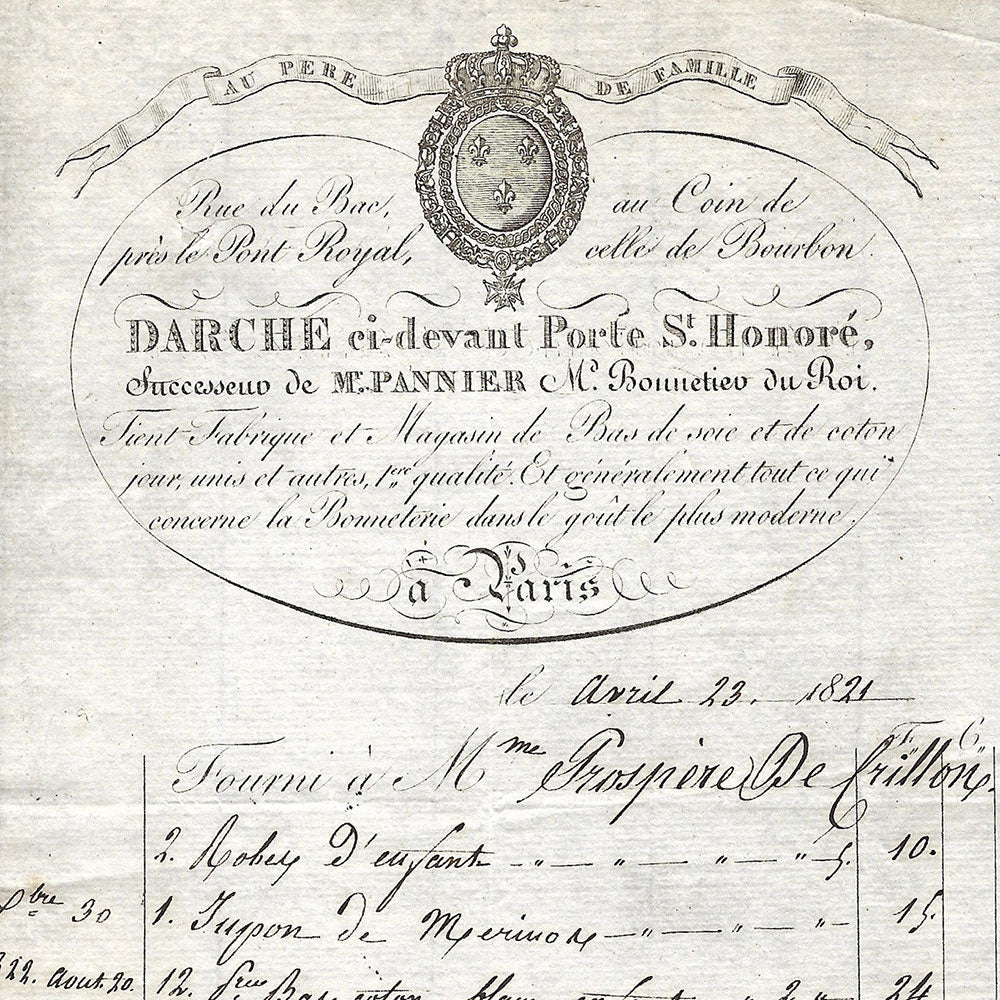 AU PERE DE FAMILLE
Rue du Bac, au Coin de
près le Pont Royal, celle de Bourbon.
DARCHE ci-devant Porte St. Honoré,
Successeur de Mr. PANNIER Md. Bonnetier du Roi.
Tient Fabrique et Magasin de Bas de soie et de coton
jour, unis et autres, 1ere. qualité. Et généralement tout ce qui
concerne la Bonneterie dans le goût le plus moderne.
à Paris
le Avril 23. 1821
F. C.
Fourni à Mme Prospère De Crillon,
2. Robes d'enfant — " — " — " — " 5. 10.
bre 30 1. Jupon de Merinos — " — " — " — 15.
22. Aout. 20. 12. Bas coton blanc enfant 2 " 24